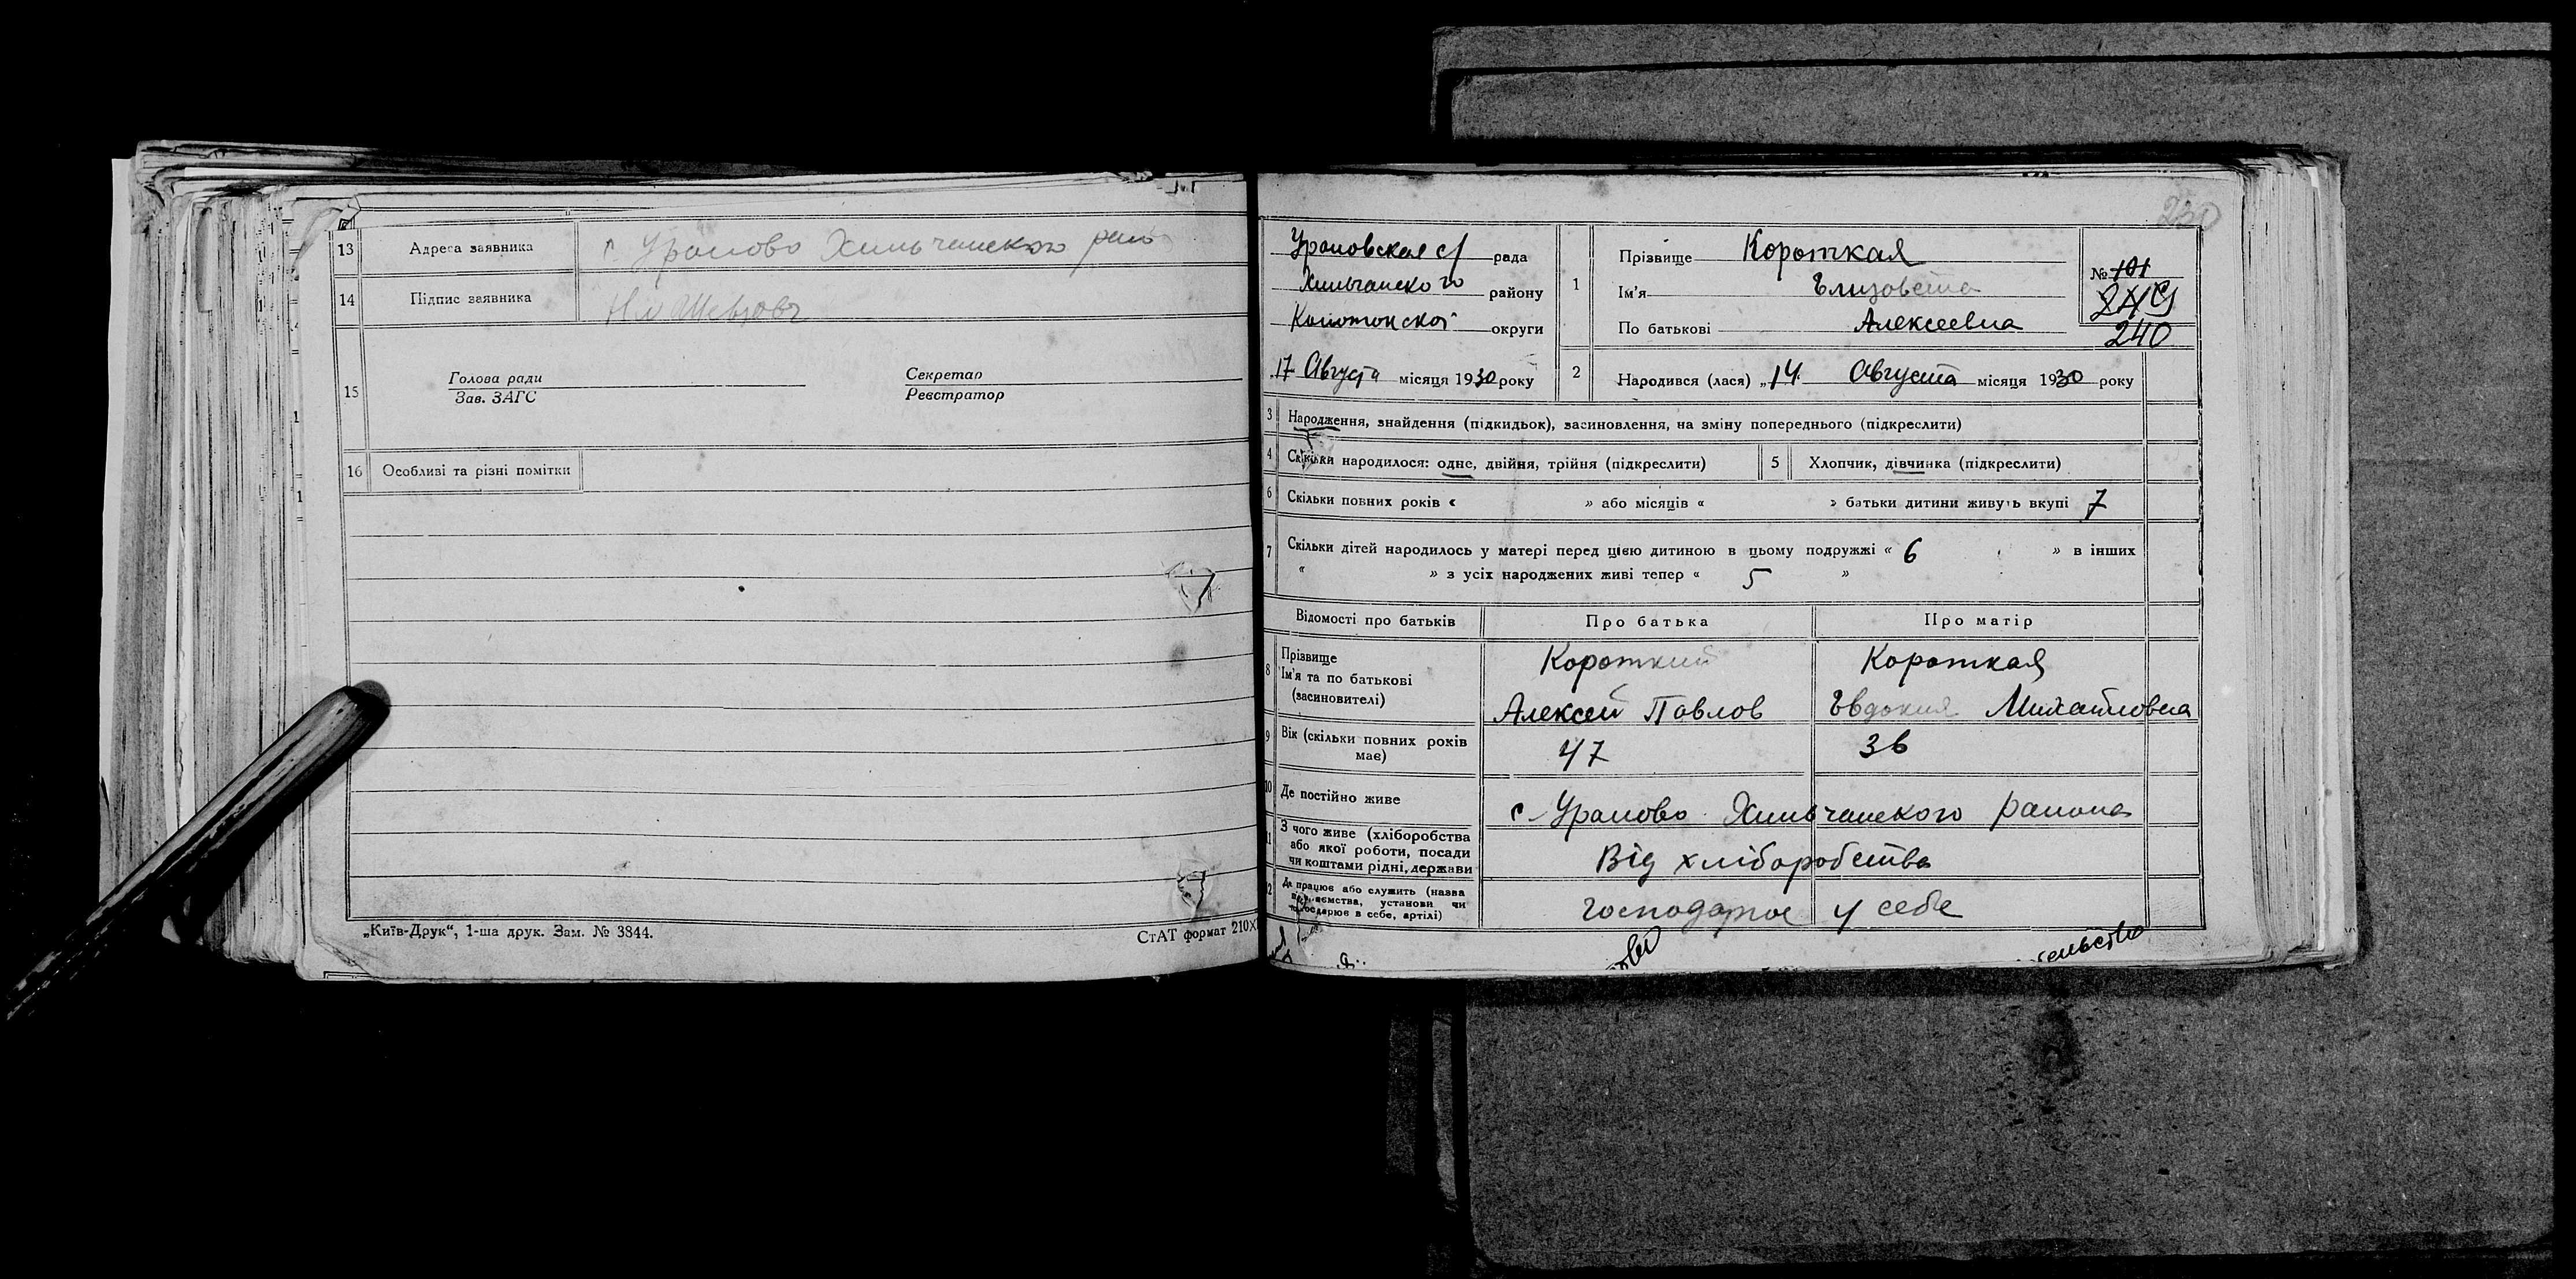 13 Адреса заявника с Уралово Хильчанского рай
14 Підпис заявника
15 Голова ради Секретар
Зав. ЗАГС Реєстратор
16 Особливі та різні помітки
„Київ-Друк“, 1-ша друк. Зам. № 3844.
СтАТ формат 210Х
Ураловская с/ рада
Хильчанского району
Конотопской округи
17 Августа місяця 1930 року
1 Прізвище Короткая
Ім'я Елизовета
По батькові Алексеевна
№ 101
240
2 Народився (лася) „14 Августа місяця 1930 року
3 Народження, знайдення (підкидьок), засиновлення, на зміну попереднього (підкреслити)
4 Скільки народилося: одне, двійня, трійня (підкреслити) 5 Хлопчик, дівчинка (підкреслити)
6 Скільки повних років « » або місяців « » батьки дитини живуть вкупі 7
7 Скільки дітей народилось у матері перед цією дитиною в цьому подружжі « 6 » в інших
« » з усіх народжених живі тепер « 5 »
Відомості про батьків Про батька Про матір
8 Прізвище Короткий Короткая
Ім'я та по батькові
(засиновителі) Алексей Павлов Евдокия Михайловна
9 Вік (скільки повних років
має) 47 36
10 Де постійно живе с Уралово Хильчанского района
11 З чого живе (хліборобства
або якої роботи, посади
чи коштами рідні, держави Від хліборобства
12 Де працює або служить (назва
підприємства, установи чи
господарює в себе, артілі) господарює у себе